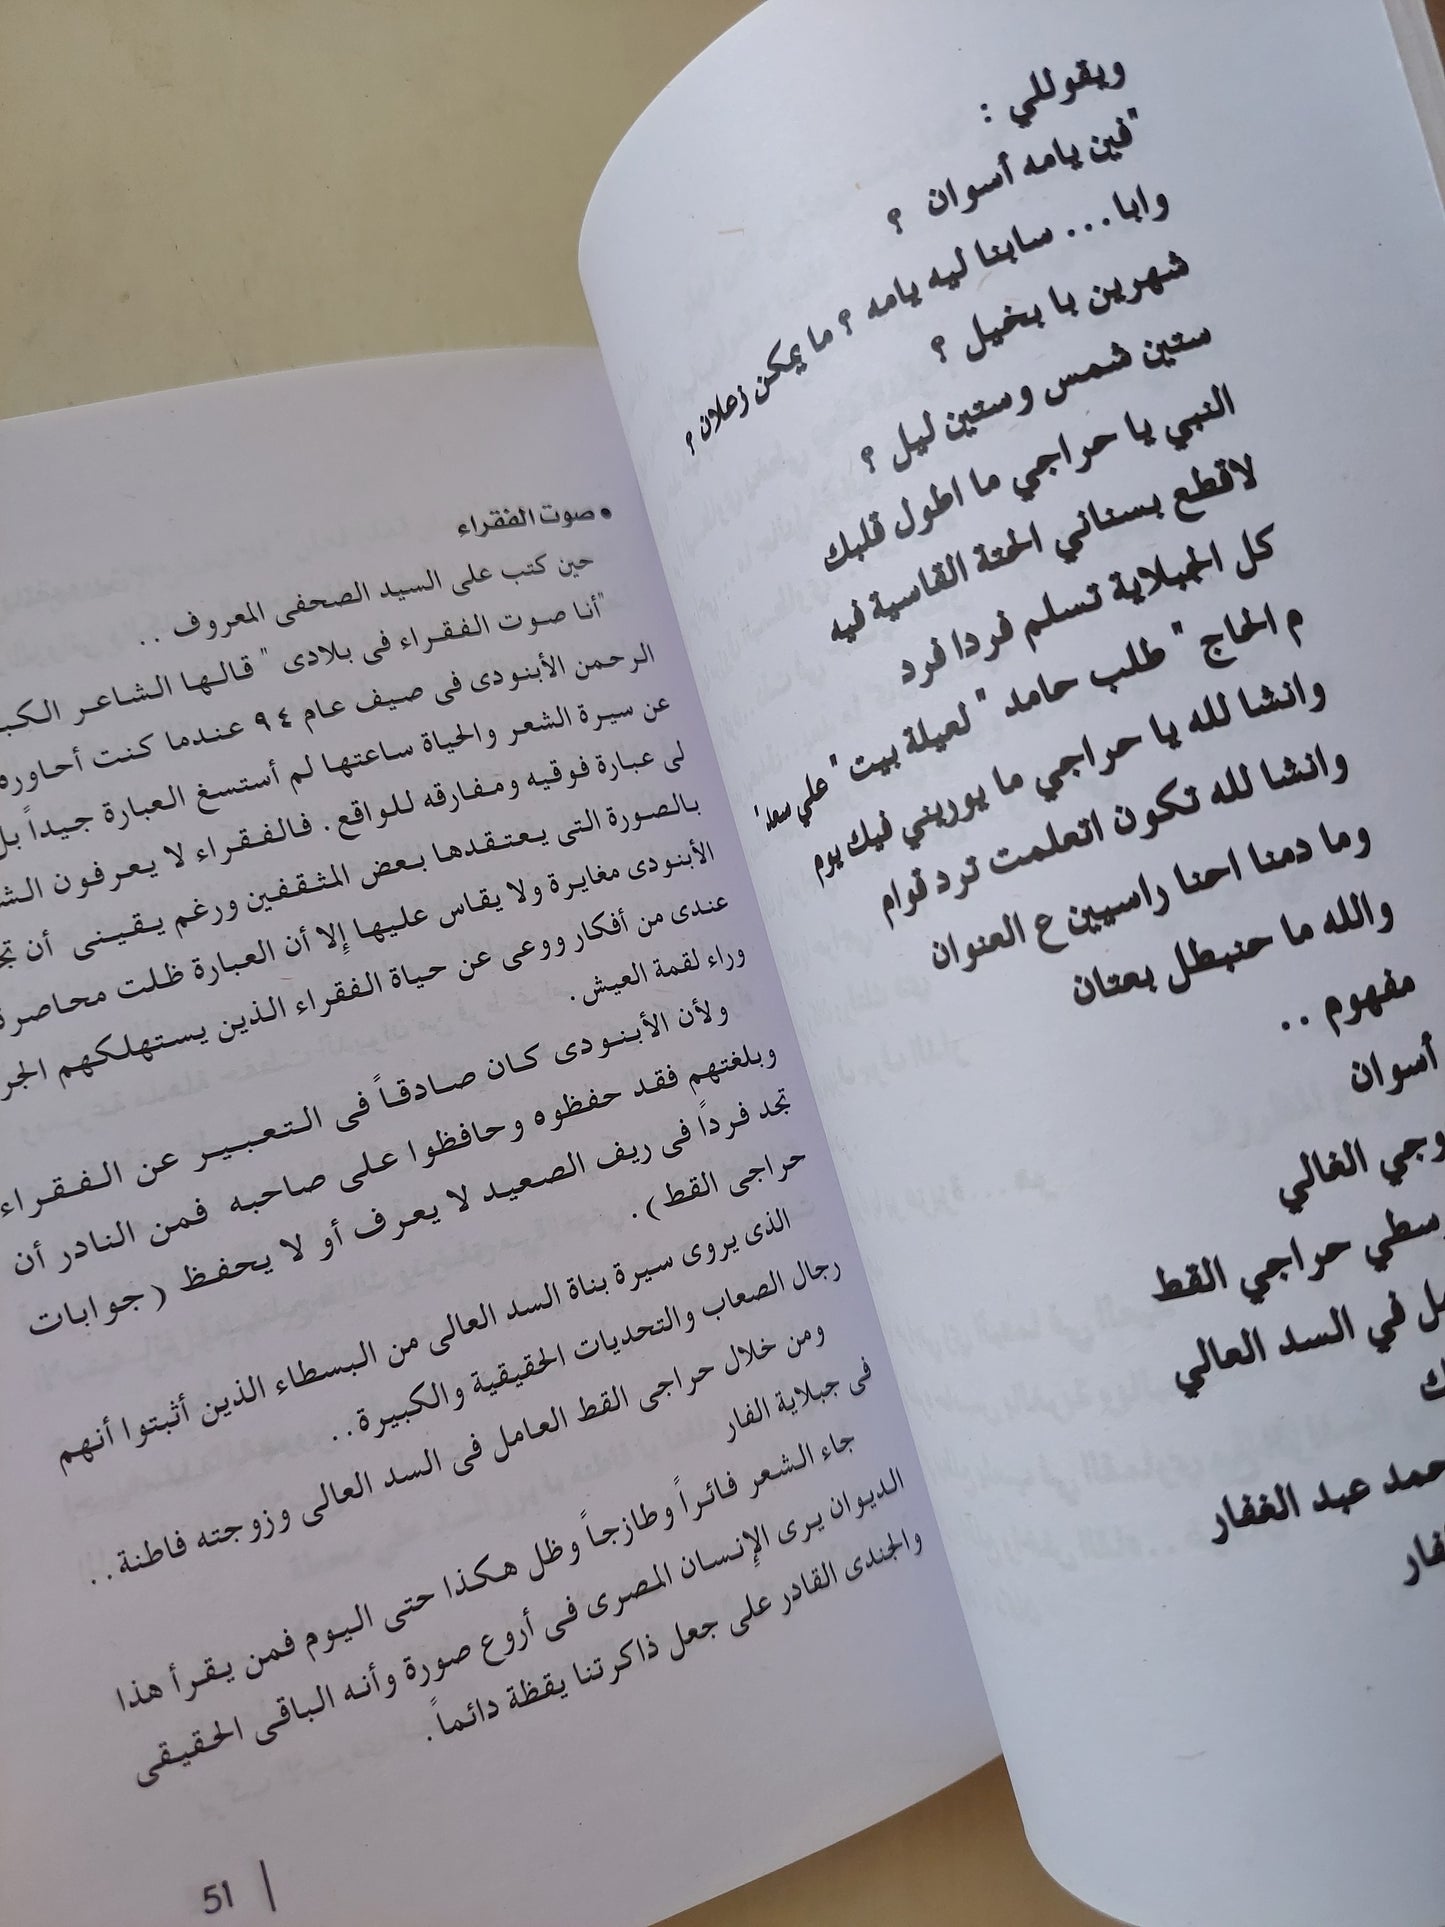 ويقوللي :
"فين يامه أسوان ؟
وابا... سابنا ليه يامه ؟ ما يمكن زعلان ؟
شهرين با بخيل ؟
ستين شمس وستين ليل ؟
النبي يا حراجي ما اطول قلبك
لاقطع بسناني الحتة القاسية فيه
كل الجبلاية تسلم فردا فرد
م الحاج " طلب حامد " لعيلة بيت " علي سعد"
وانشا لله يا حراجي ما يوريني فيك يوم
وانشا لله تكون اتعلمت ترد قوام
وما دمنا احنا راسيين ع العنوان
والله ما حنبطل بعتان
مفهوم ..
أسوان
الغالي
حراجي القط
في السد العالي
عبد الغفار
• صوت الفقراء
حين كتب على السيد الصحفى المعروف ..
"أنا صوت الفقراء فى بلادى " قالها الشاعر
الرحمن الأبنودى فى صيف عام ٩٤ عندما كنت أحاوره
عن سيرة الشعر والحياة ساعتها لم أستسغ العبارة جيداً
لى عبارة فوقيه ومفارقه للواقع . فالفقراء لا يعرفون
بالصورة التى يعتقدها بعض المثقفين ورغم يقينى أن
الأبنودى مغايرة ولا يقاس عليها إلا أن العبارة ظلت محاصرة
عندى من أفكار ووعى عن حياة الفقراء الذين يستهلكهم
وراء لقمة العيش .
ولأن الأبنودى كان صادقاً فى التعبير عن الفقراء
وبلغتهم فقد حفظوه وحافظوا على صاحبه فمن النادر أن
تجد فرداً فى ريف الصعيد لا يعرف أو لا يحفظ (جوابات
حراجى القط).
الذى يروى سيرة بناة السد العالى من البسطاء الذين أثبتوا أنهم
رجال الصعاب والتحديات الحقيقية والكبيرة..
ومن خلال حراجى القط العامل فى السد العالى وزوجته فاطنة..
فى جبلاية الفار
جاء الشعر فائراً وطازجاً وظل هكذا حتى اليوم فمن يقرأ هذا
الديوان يرى الإنسان المصرى فى أروع صورة وأنه الباقى الحقيقى
والجندى القادر على جعل ذاكرتنا يقظة دائماً.
51